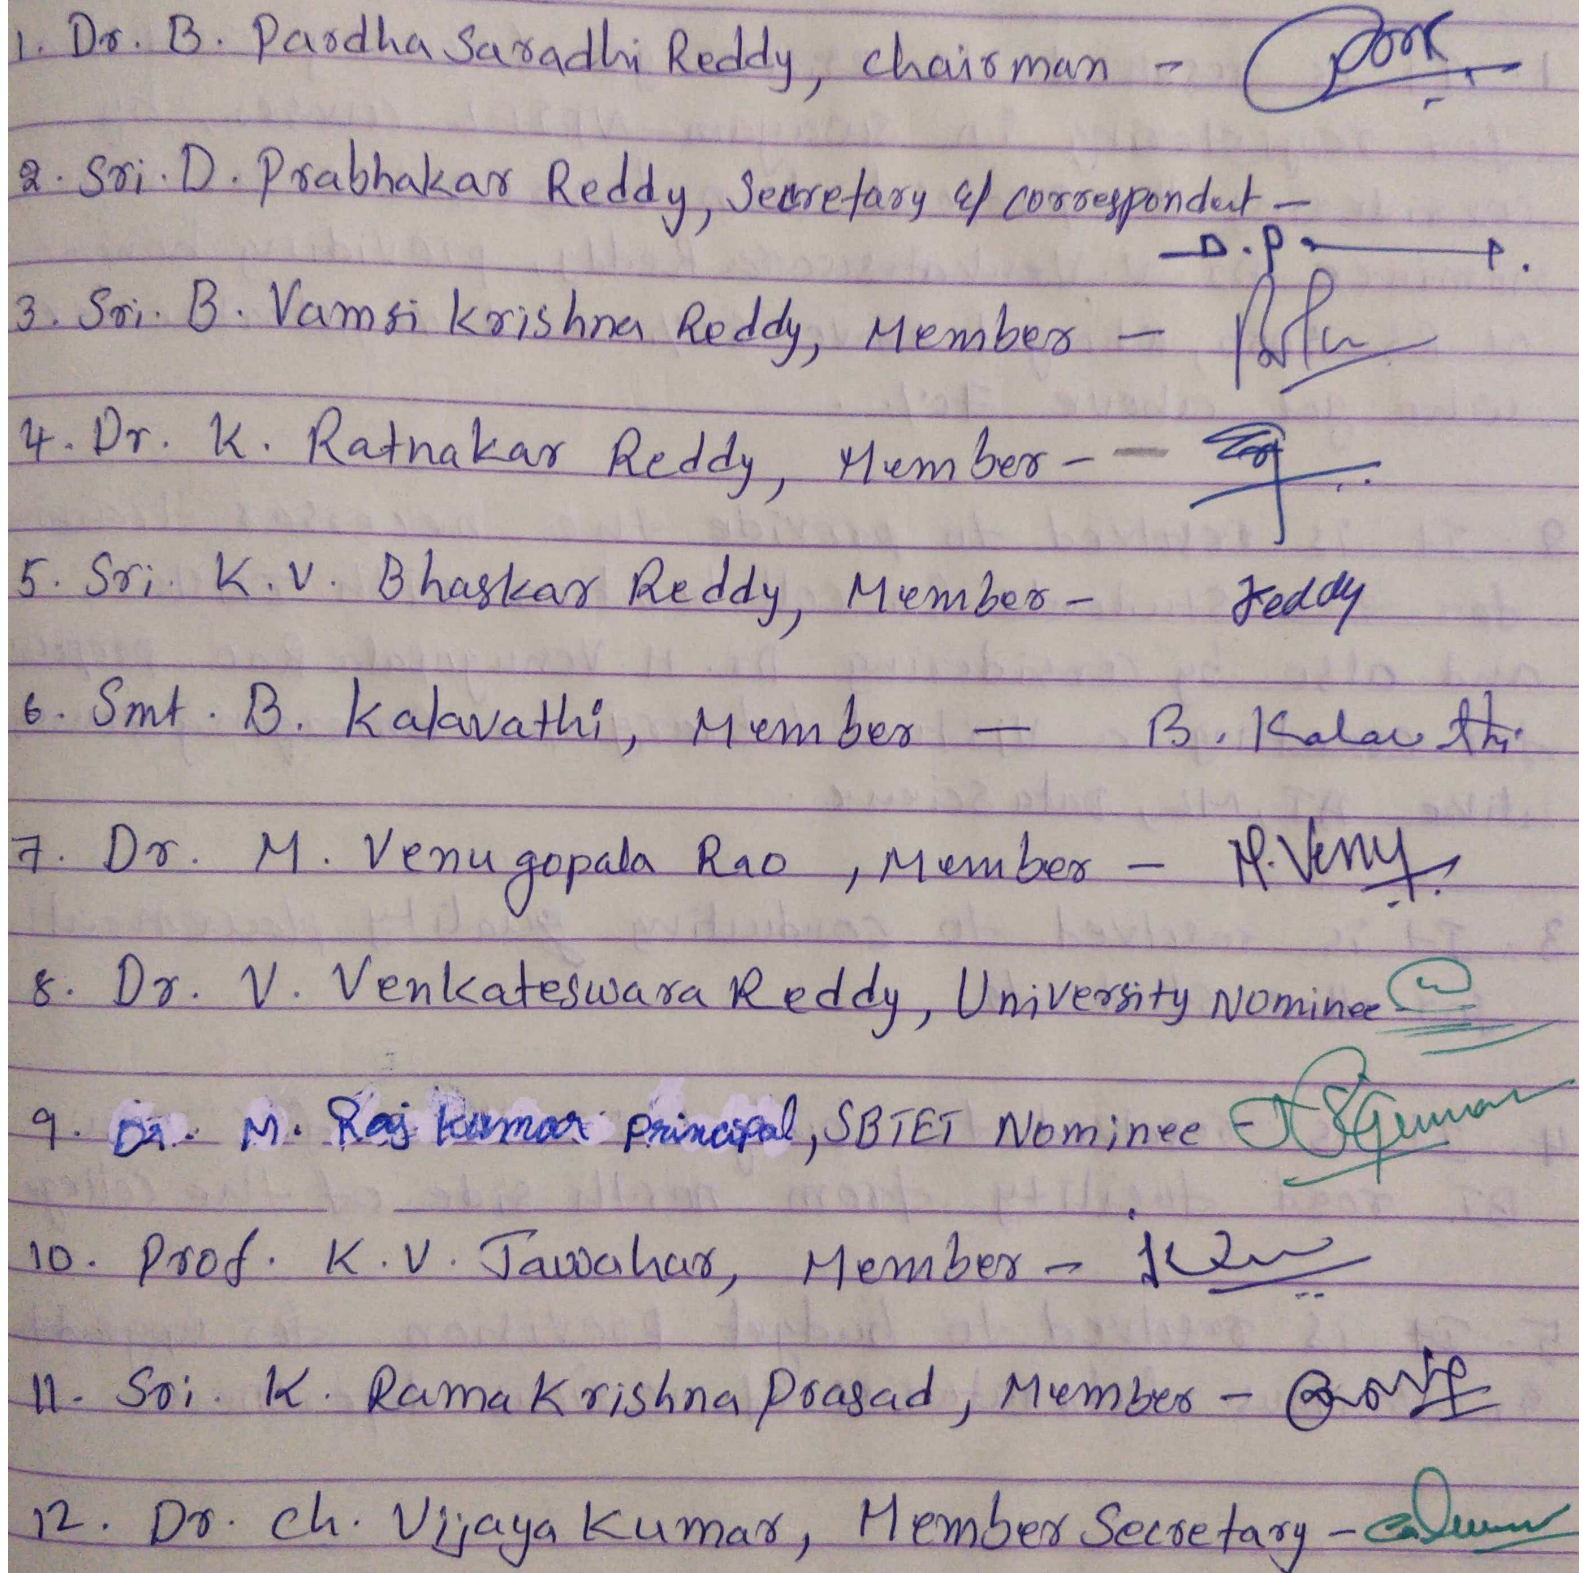 1. Dr. B. Pardha Saradhi Reddy, chairman -
2. Sri. D. Prabhakar Reddy, Secretary & correspondent -
D.P
3. Sri. B. Vamsi Krishna Reddy, Member -
4. Dr. K. Ratnakar Reddy, Member -
5. Sri. K.V. Bhaskar Reddy, Member - Reddy
6. Smt. B. Kalavathi, Member - B. Kalavathi
7. Dr. M. Venugopala Rao, Member - M. Venu
8. Dr. V. Venkateswara Reddy, University Nominee
9. Dr. M. Raj Kumar principal, SBTET Nominee
10. Prof. K.V. Jawahar, Member -
11. Sri. K. Rama Krishna Prasad, Member -
12. Dr. ch. Vijaya Kumar, Member Secretary -